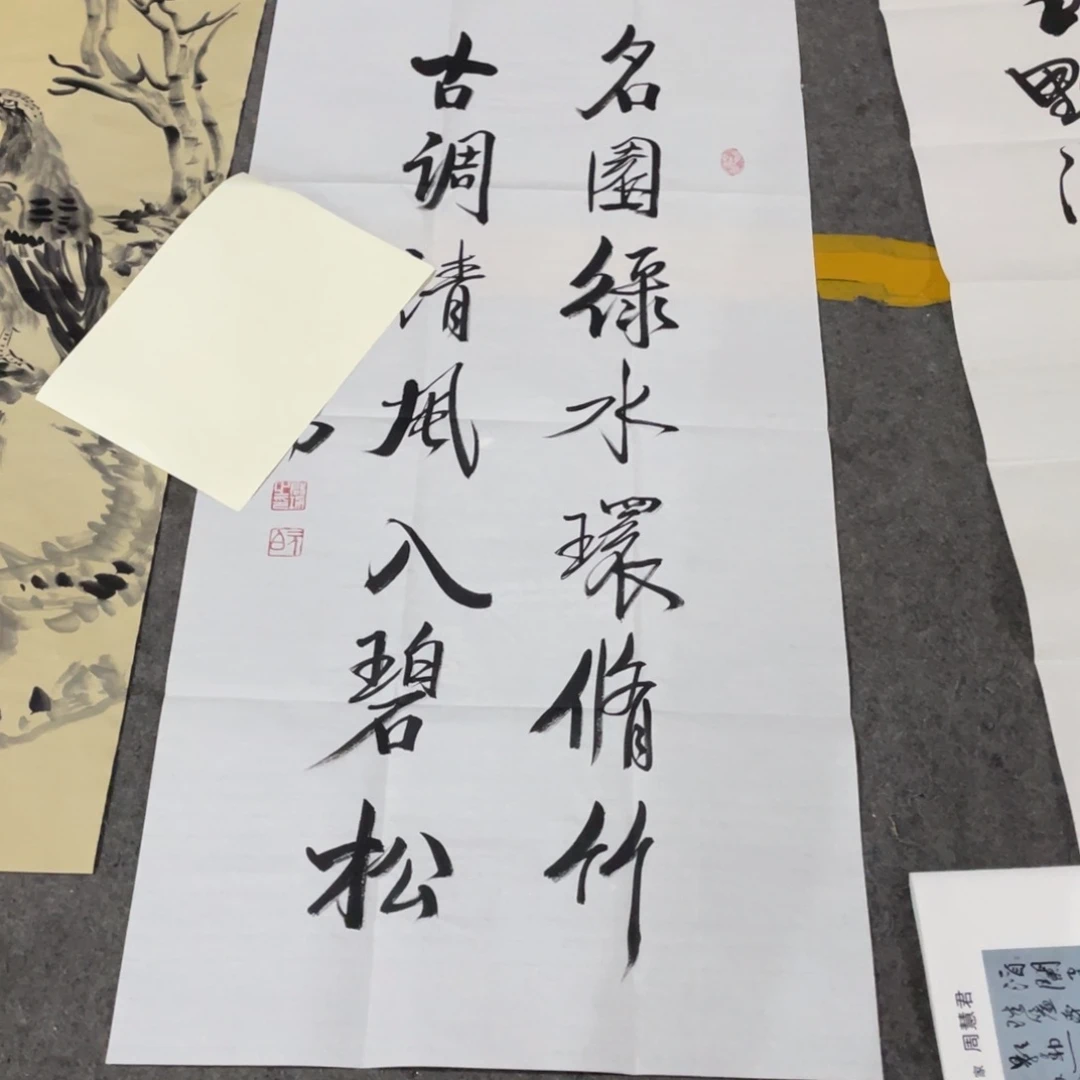 名園綠水環脩竹
古調清風入碧松
野
家 周慧君